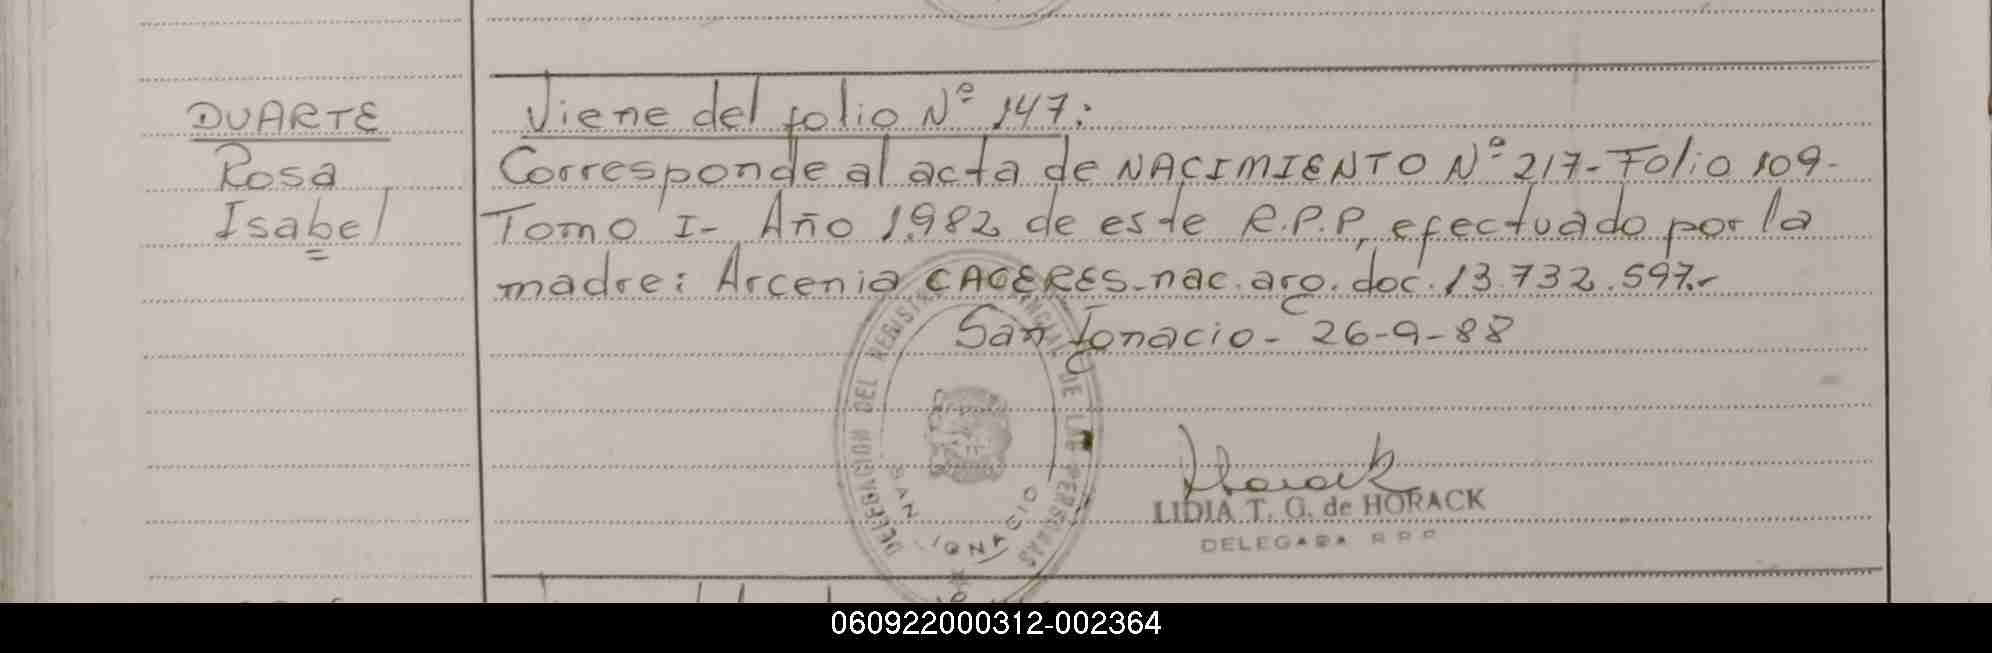 DUARTE
Rosa
Isabel
Viene del folio Nº 147:
Corresponde al acta de NACIMIENTO Nº 217-Folio 109-
Tomo I- Año 1982 de este R.P.P, efectuado por la
madre: Arcenia CACERES-nac. arg. doc. 13.732.597.-
San Ignacio- 26-9-88
DELEGACION DEL REGISTRO PROVINCIAL DE LAS PERSONAS
SAN IGNACIO
Horack
LIDIA T. G. de HORACK
DELEGADA R P P
060922000312-002364